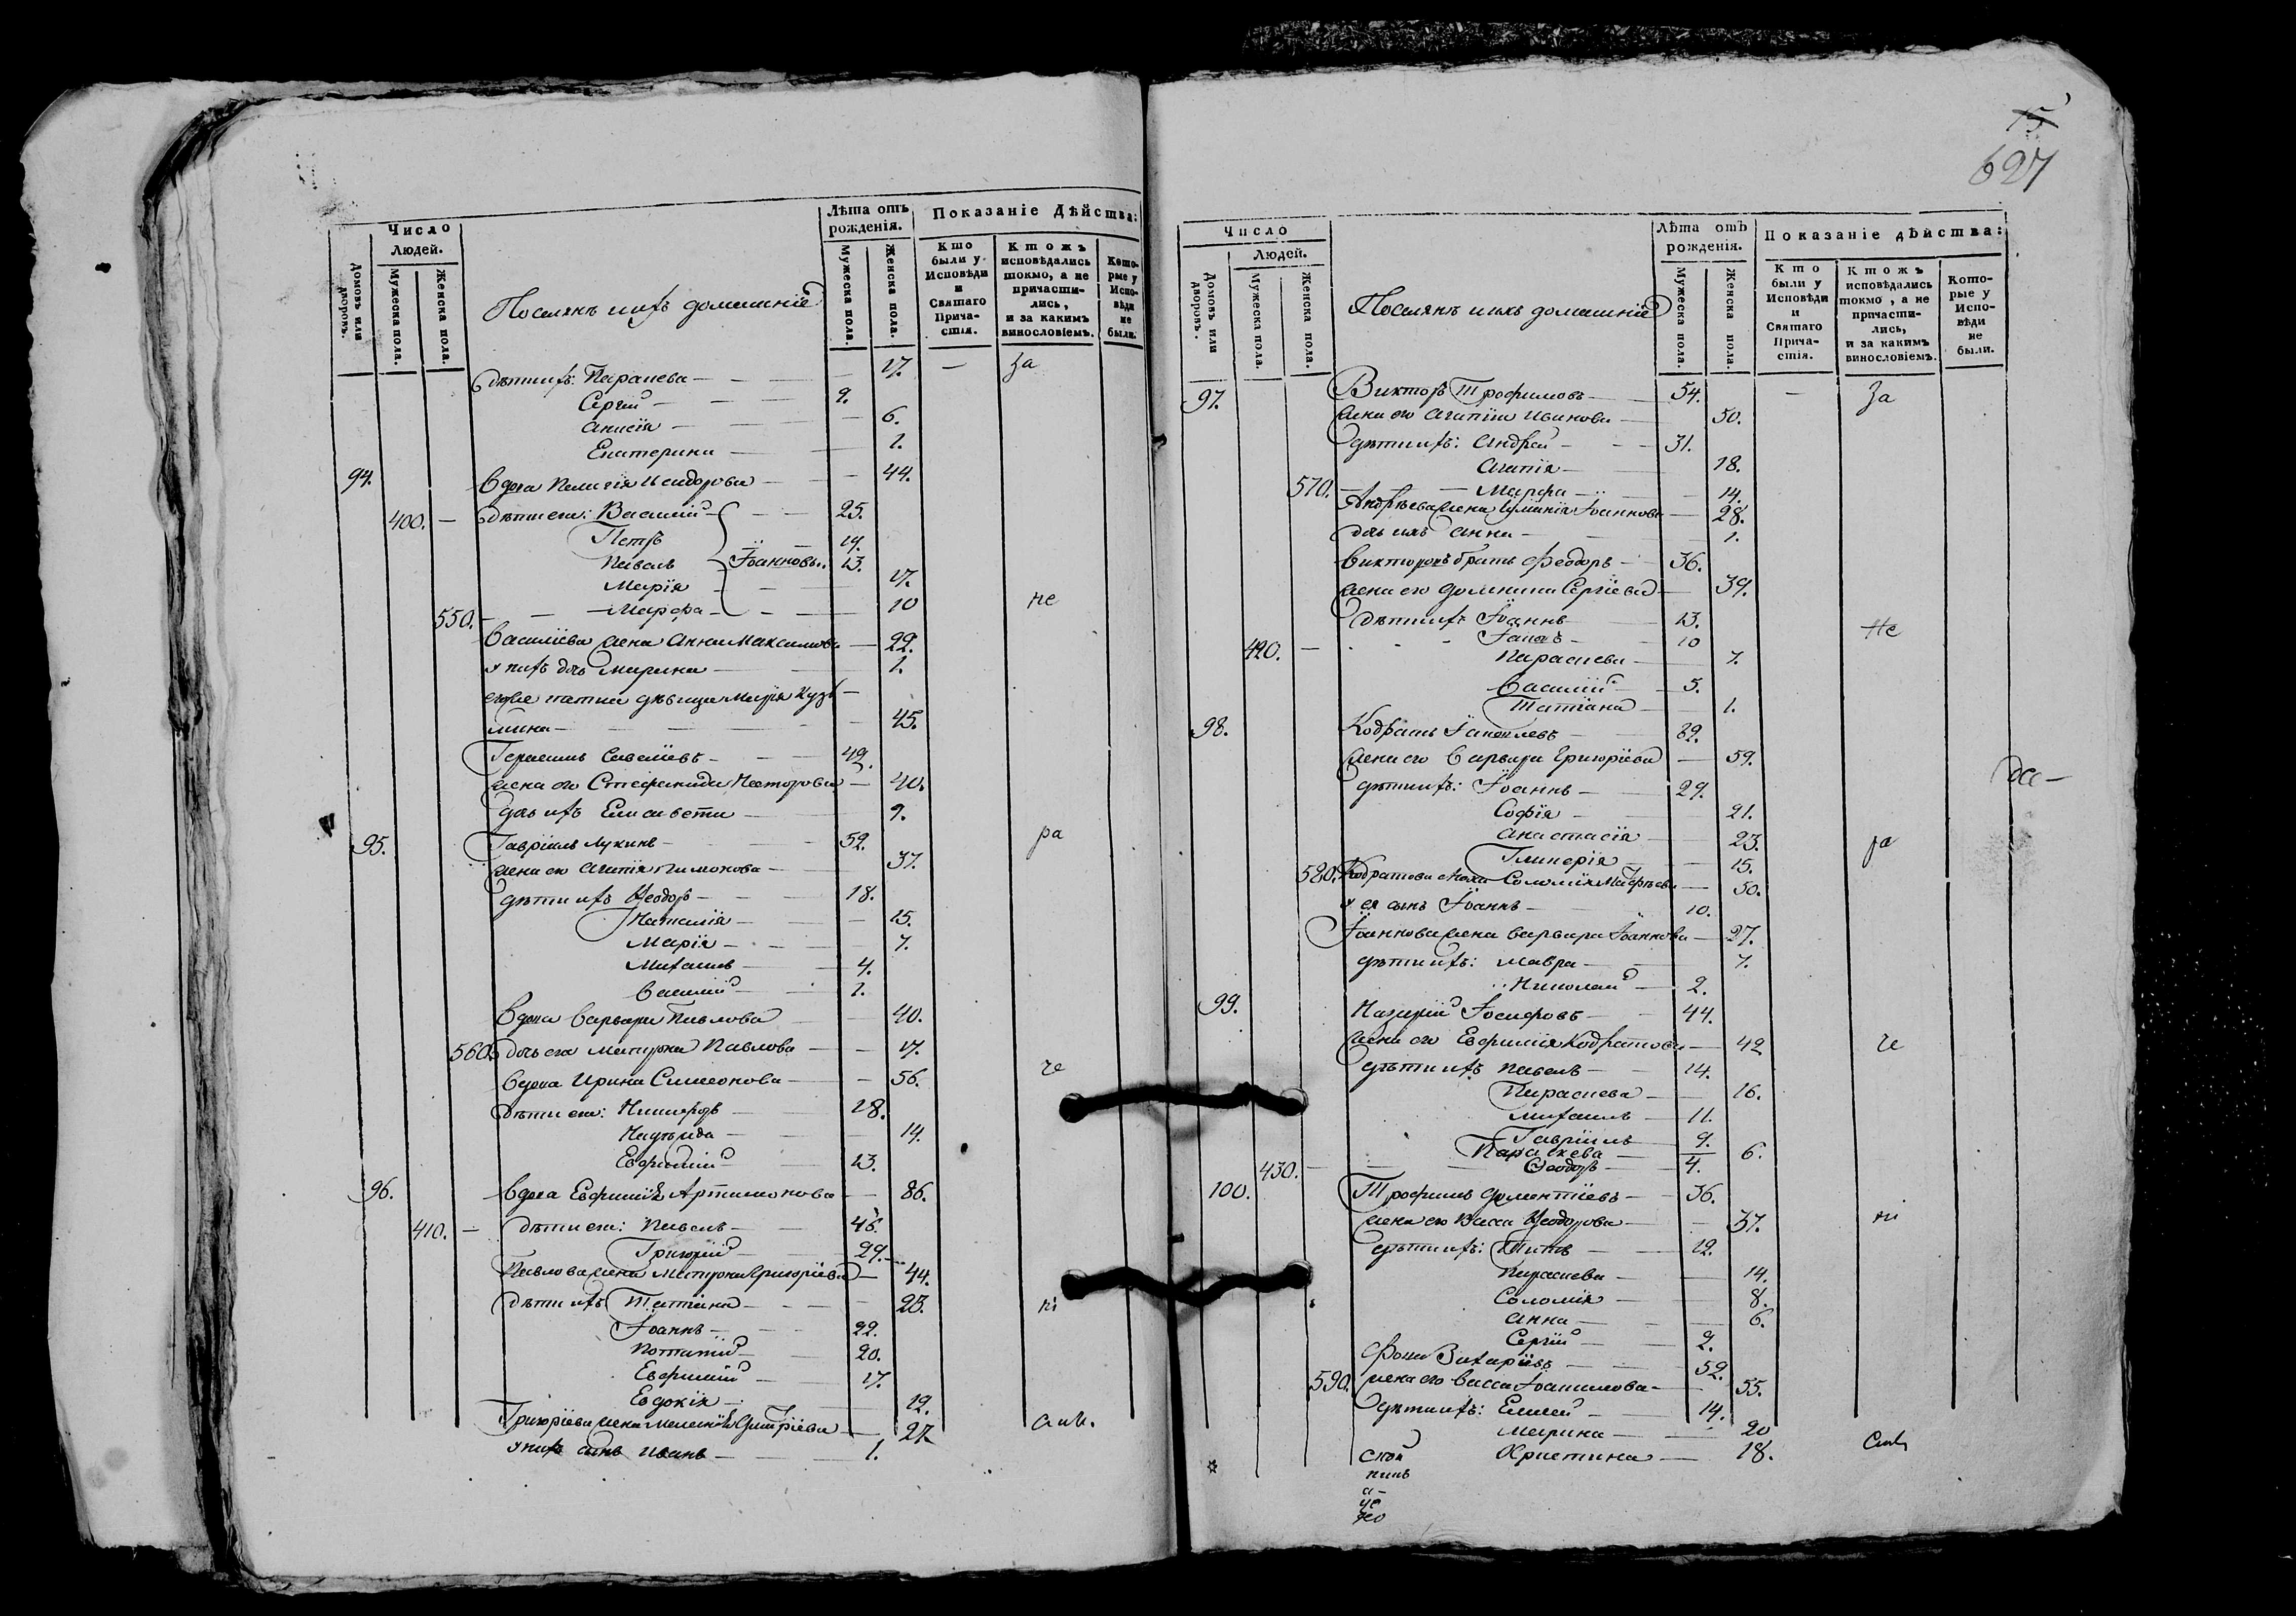 15
627
Число
Людей.
Домовъ или дворовъ.
Мужеска пола.
Женска пола.
Поселянъ ихъ домашніе
Лѣта отъ рожденія.
Мужеска пола.
Женска пола.
Показаніе Дѣйства:
Кто были у Исповѣди и Святаго Прича-стія.
Ктожъ исповѣдались токмо, а не причасти-лись, и за какимъ винословіемъ.
Кото-рые у Испо-вѣди не были.
дѣти ихъ: Параскева — 17. — За
Сергій — 9.
Анисія — 6.
Екатерина — 1.
94. вдова Пелагія Исидорова — 44.
400. — дѣти ея: Василій — 25.
Петръ — 19.
Павелъ Іоанновы. 13.
Марія — 17.
550. — Марѳа — 10 не
Василіева жена Анна Максимова — 22.
у нихъ дочь Марина — 1.
дѣвица Марія Кузь-
мина — 45.
Герасимъ Савеліевъ — 49.
жена его Стефанида Несторова — 40.
дочь ихъ Елисавета — 9.
95. Гавріилъ Лукинъ — 52. ра
жена его Агапія Филимонова — 37.
дѣти ихъ Ѳеодоръ — 18.
Наталія — 15.
Марія — 7.
Михаилъ — 4.
Василій — 1.
вдова Варвара Павлова — 40.
560. дочь ея Матрона Павлова — 17.
вдова Ирина Симеонова — 56. че
дѣти ея: Никифоръ — 18.
14.
Евфимій — 13.
96. вдова Евфимія Артамонова — 86.
410. — дѣти ея: Павелъ — 46.
Григорій — 29.
Павлова жена Матрона Григоріева — 44.
дѣти ихъ Татіана — 23. ні
Іоаннъ — 22.
Потапій — 20.
Евфимій — 17.
Евдокія — 12.
Григоріева жена Меланія Димитріева — 27. емъ.
у нихъ сынъ Иванъ — 1.
Число
Людей.
Домовъ или дворовъ.
Мужеска пола.
Женска пола.
Поселянъ ихъ домашніе
Лѣта отъ рожденія.
Мужеска пола.
Женска пола.
Показаніе дѣйства:
Кто были у Исповѣди и Святаго Прича-стія.
Ктожъ исповѣдались токмо, а не причасти-лись, и за какимъ винословіемъ.
Кото-рые у Испо-вѣди не были.
97. Викторъ Трофимовъ — 54. — За
жена его Агапія Иванова — 50.
дѣти ихъ: Андрей — 31.
Агапія — 18.
570. — Марфа — 14.
Андреева жена Іоаннова — 28.
дочь ихъ Анна — 1.
Викторовъ братъ Феодоръ — 36.
жена его Домника Сергіева — 39.
дѣти ихъ Іоаннъ — 13.
420. — Іаковъ — 10 не
Параскева — 7.
Василій — 5.
Татіана — 1.
98. Кодратъ Іаковлевъ — 82.
жена его Варвара Григоріева — 59.
дѣти ихъ: Іоаннъ — 29.
Софія — 21.
Анастасія — 23. ра
Гликерія — 15.
580. Кодратова сноха Соломія Матѳѣева — 50.
у ея сынъ Іоаннъ — 10.
Іоаннова жена Варвара Іоаннова — 27.
дѣти ихъ: Мавра — 7.
Николай — 2.
99. Назарій Іосифовъ — 44.
жена его Евфимія Кодратова — 42 че
дѣти ихъ Павелъ — 14.
Параскева — 16.
Михаилъ — 11.
Гавріилъ — 9.
Параскева — 6.
430. — Ѳеодоръ — 4.
100. Трофимъ Дементіевъ — 36.
жена его Васса Ѳеодорова — 37. ні
дѣти ихъ: Титъ — 12.
Параскева — 14.
Соломія — 8.
Анна — 6.
Сергій — 2.
Фока Захаріевъ — 52.
590. жена его Васса Іоакимова — 55.
дѣти ихъ: Елисей — 14.
Марина — 20
Христина — 18. емъ